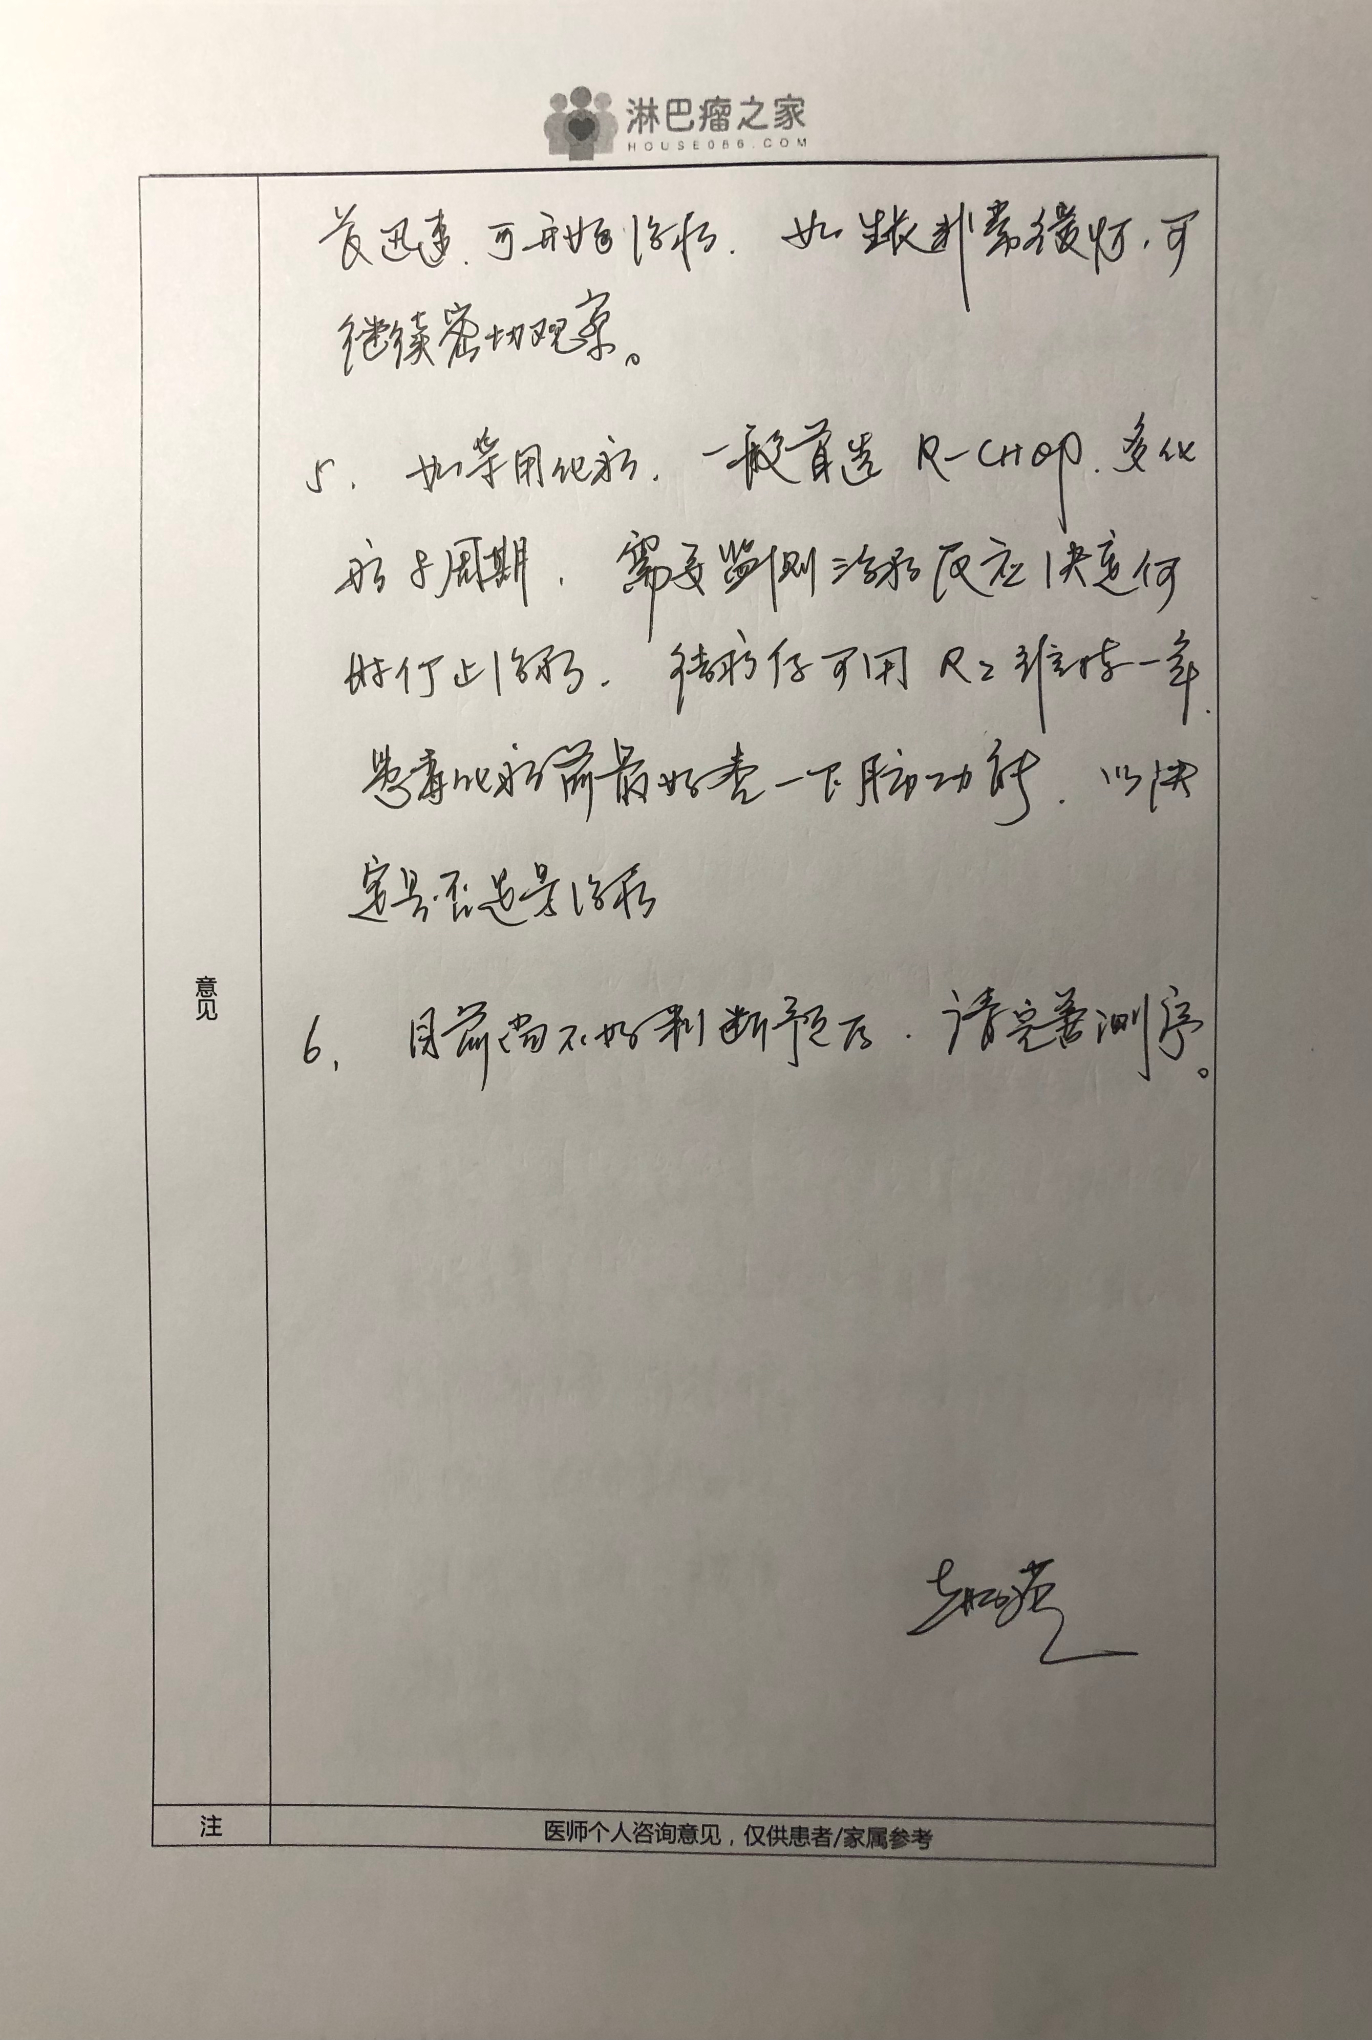 淋巴瘤之家
HOUSE086.COM
展迅速、可开始治疗. 如生长非常缓慢,可
继续密切观察。
5. 如采用化疗, 一般首选 R-CHOP, 多化
疗 周期, 需要监测治疗反应决定何
时停止治疗. 结疗后可用 R2 维持一年.
患者化疗前最好查一下脏功能, 以决
定是否适宜治疗
意见
6. 目前尚不好判断预后. 请完善测序。
注
医师个人咨询意见,仅供患者/家属参考